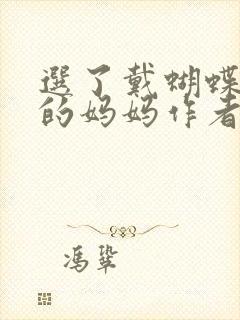 選了戴蝴蝶
的妈妈作者
冯鞏